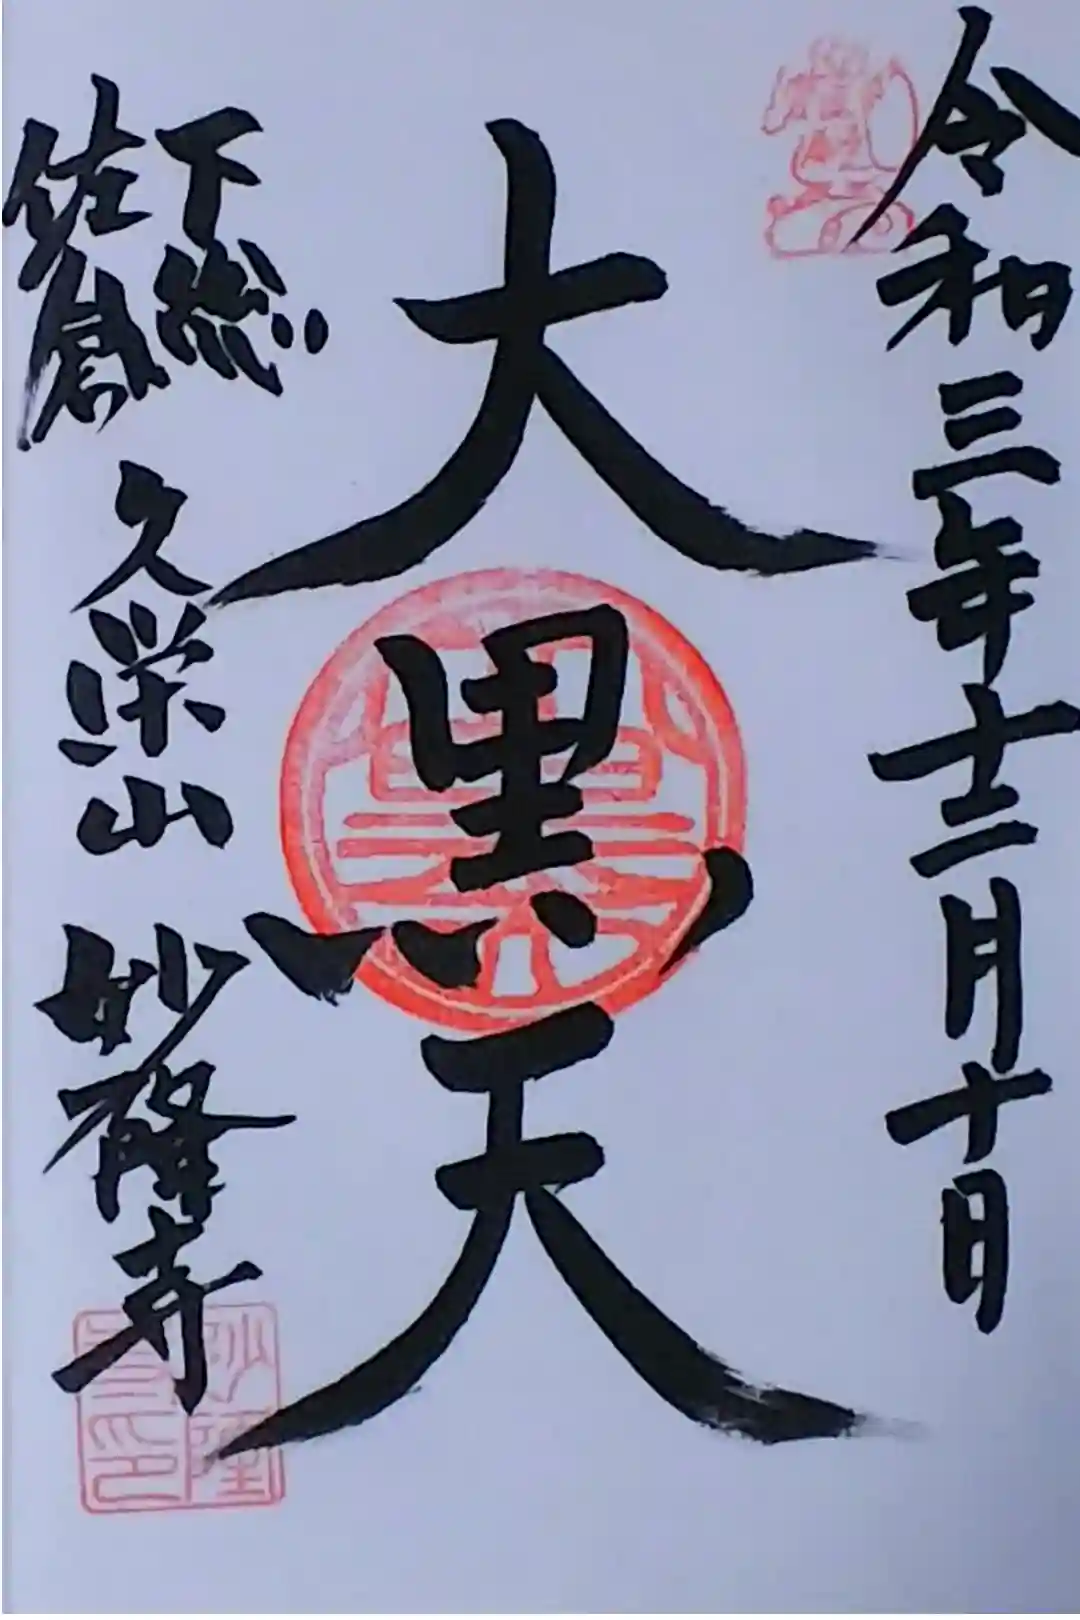 令和三年十二月十日
大黒天
下総
佐倉
久栄山 妙隆寺